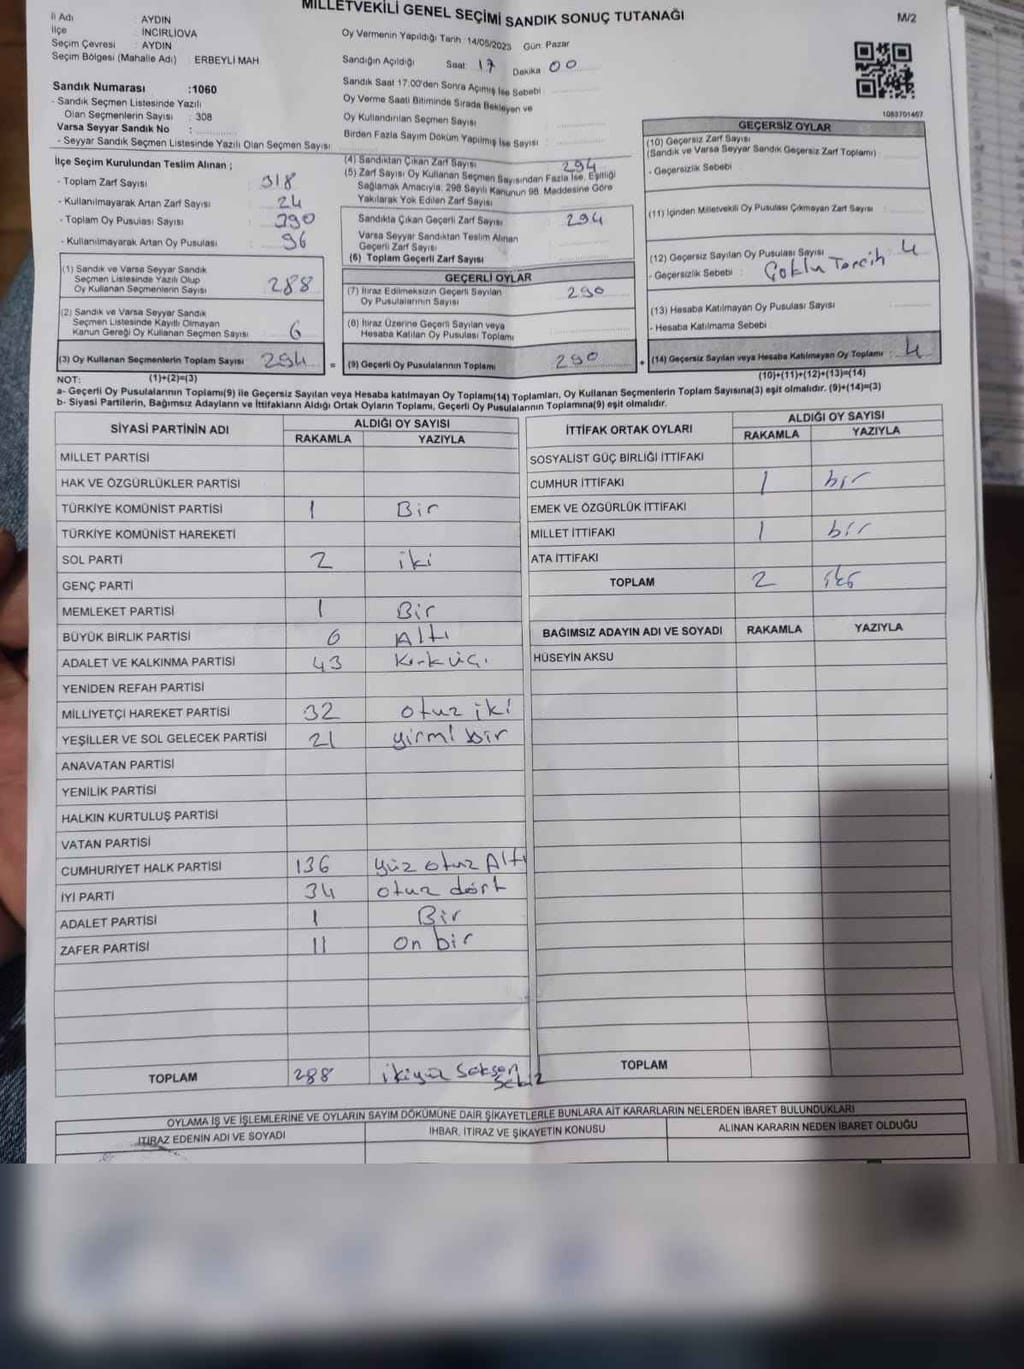 MİLLETVEKİLİ GENEL SEÇİMİ SANDIK SONUÇ TUTANAĞI
M/2
İl Adı AYDIN
İlçe İNCİRLİOVA
Seçim Çevresi : AYDIN
Seçim Bölgesi (Mahalle Adı) : ERBEYLİ MAH.
Oy Vermenin Yapıldığı Tarih 14/05/2023 Gün: Pazar
Sandığın Açıldığı Saat 17 Dakika 00
Sandık Saat 17:00'den Sonra Açılmış İse Sebebi
Oy Verme Saati Bitiminde Sırada Bekleyen ve
Oy Kullandırılan Seçmen Sayısı
Birden Fazla Sayım Döküm Yapılmış İse Sayısı
Sandık Numarası :1060
- Sandık Seçmen Listesinde Yazılı
Olan Seçmenlerin Sayısı : 308
Varsa Seyyar Sandık No :
- Seyyar Sandık Seçmen Listesinde Yazılı Olan Seçmen Sayısı
1083701467
İlçe Seçim Kurulundan Teslim Alınan ;
- Toplam Zarf Sayısı 318
- Kullanılmayarak Artan Zarf Sayısı 24
- Toplam Oy Pusulası Sayısı 390
- Kullanılmayarak Artan Oy Pusulası 96
(1) Sandık ve Varsa Seyyar Sandık
Seçmen Listesinde Yazılı Olup
Oy Kullanan Seçmenlerin Sayısı 288
(2) Sandık ve Varsa Seyyar Sandık
Seçmen Listesinde Kayıtlı Olmayan
Kanun Gereği Oy Kullanan Seçmen Sayısı 6
(3) Oy Kullanan Seçmenlerin Toplam Sayısı 294
(1)+(2)=(3)
(4) Sandıktan Çıkan Zarf Sayısı 294
(5) Zarf Sayısı Oy Kullanan Seçmen Sayısından Fazla İse, Eşitliği
Sağlamak Amacıyla; 298 Sayılı Kanunun 98. Maddesine Göre
Yakılarak Yok Edilen Zarf Sayısı
Sandıkta Çıkan Geçerli Zarf Sayısı 294
Varsa Seyyar Sandıktan Teslim Alınan
Geçerli Zarf Sayısı
(6) Toplam Geçerli Zarf Sayısı
GEÇERLİ OYLAR
(7) İtiraz Edilmeksizin Geçerli Sayılan
Oy Pusulalarının Sayısı 290
(8) İtiraz Üzerine Geçerli Sayılan veya
Hesaba Katılan Oy Pusulası Toplamı
= (9) Geçerli Oy Pusulalarının Toplamı 290
GEÇERSİZ OYLAR
(10) Geçersiz Zarf Sayısı
(Sandık ve Varsa Seyyar Sandık Geçersiz Zarf Toplamı)
- Geçersizlik Sebebi
(11) İçinden Milletvekili Oy Pusulası Çıkmayan Zarf Sayısı
(12) Geçersiz Sayılan Oy Pusulası Sayısı 4
- Geçersizlik Sebebi : Çoklu Tercih
(13) Hesaba Katılmayan Oy Pusulası Sayısı
- Hesaba Katılmama Sebebi
+ (14) Geçersiz Sayılan veya Hesaba Katılmayan Oy Toplamı : 4
(10)+(11)+(12)+(13)=(14)
NOT:
a- Geçerli Oy Pusulalarının Toplamı(9) ile Geçersiz Sayılan veya Hesaba katılmayan Oy Toplamı(14) Toplamları, Oy Kullanan Seçmenlerin Toplam Sayısına(3) eşit olmalıdır. (9)+(14)=(3)
b- Siyasi Partilerin, Bağımsız Adayların ve İttifakların Aldığı Ortak Oyların Toplamı, Geçerli Oy Pusulalarının Toplamına(9) eşit olmalıdır.
SİYASİ PARTİNİN ADI ALDIĞI OY SAYISI
RAKAMLA YAZIYLA
MİLLET PARTİSİ
HAK VE ÖZGÜRLÜKLER PARTİSİ
TÜRKİYE KOMÜNİST PARTİSİ 1 Bir
TÜRKİYE KOMÜNİST HAREKETİ
SOL PARTİ 2 iki
GENÇ PARTİ
MEMLEKET PARTİSİ 1 Bir
BÜYÜK BİRLİK PARTİSİ 6 Altı
ADALET VE KALKINMA PARTİSİ 43 Kırküç
YENİDEN REFAH PARTİSİ
MİLLİYETÇİ HAREKET PARTİSİ 32 otuz iki
YEŞİLLER VE SOL GELECEK PARTİSİ 21 yirmi bir
ANAVATAN PARTİSİ
YENİLİK PARTİSİ
HALKIN KURTULUŞ PARTİSİ
VATAN PARTİSİ
CUMHURİYET HALK PARTİSİ 136 yüz otuz Altı
İYİ PARTİ 34 otuz dört
ADALET PARTİSİ 1 Bir
ZAFER PARTİSİ 11 on bir
TOPLAM 288 ikiyüz Seksen
Sekiz
İTTİFAK ORTAK OYLARI ALDIĞI OY SAYISI
RAKAMLA YAZIYLA
SOSYALİST GÜÇ BİRLİĞİ İTTİFAKI
CUMHUR İTTİFAKI 1 bir
EMEK VE ÖZGÜRLÜK İTTİFAKI
MİLLET İTTİFAKI 1 bir
ATA İTTİFAKI
TOPLAM 2 iki
BAĞIMSIZ ADAYIN ADI VE SOYADI RAKAMLA YAZIYLA
HÜSEYİN AKSU
TOPLAM
OYLAMA İŞ VE İŞLEMLERİNE VE OYLARIN SAYIM DÖKÜMÜNE DAİR ŞİKAYETLERLE BUNLARA AİT KARARLARIN NELERDEN İBARET BULUNDUKLARI
İTİRAZ EDENİN ADI VE SOYADI İHBAR, İTİRAZ VE ŞİKAYETİN KONUSU ALINAN KARARIN NEDEN İBARET OLDUĞU